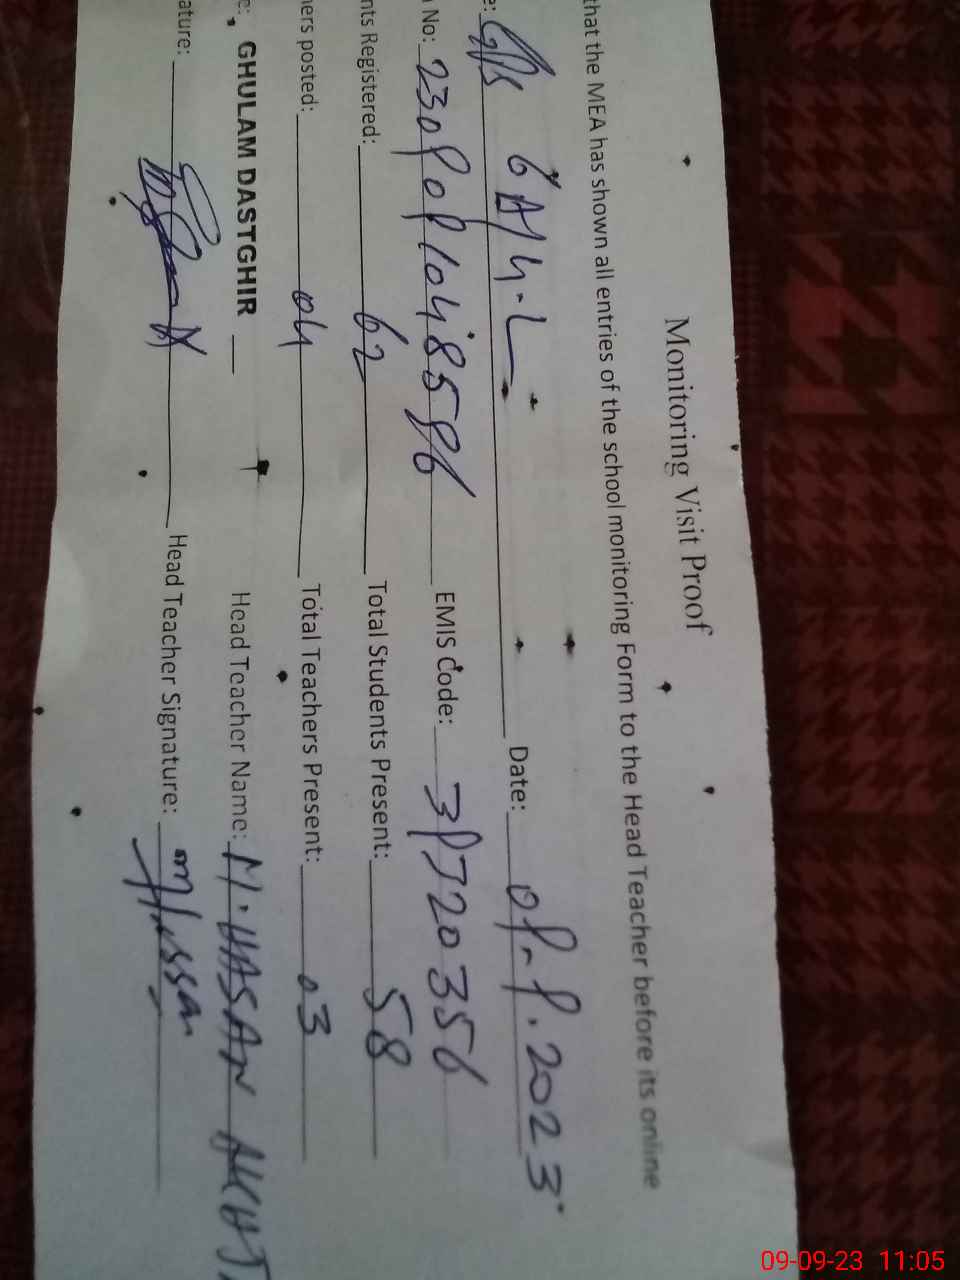 Monitoring Visit Proof
that the MEA has shown all entries of the school monitoring Form to the Head Teacher before its online
e: GPS 6A/4-L Date: 09-9.2023
No: 2309091048596 EMIS Code: 39720356
nts Registered: 62 Total Students Present: 58
ers posted: 04 Total Teachers Present: 03
e: GHULAM DASTGHIR Head Teacher Name: M. HASAN
ature: Head Teacher Signature: M Hassan
09-09-23 11:05